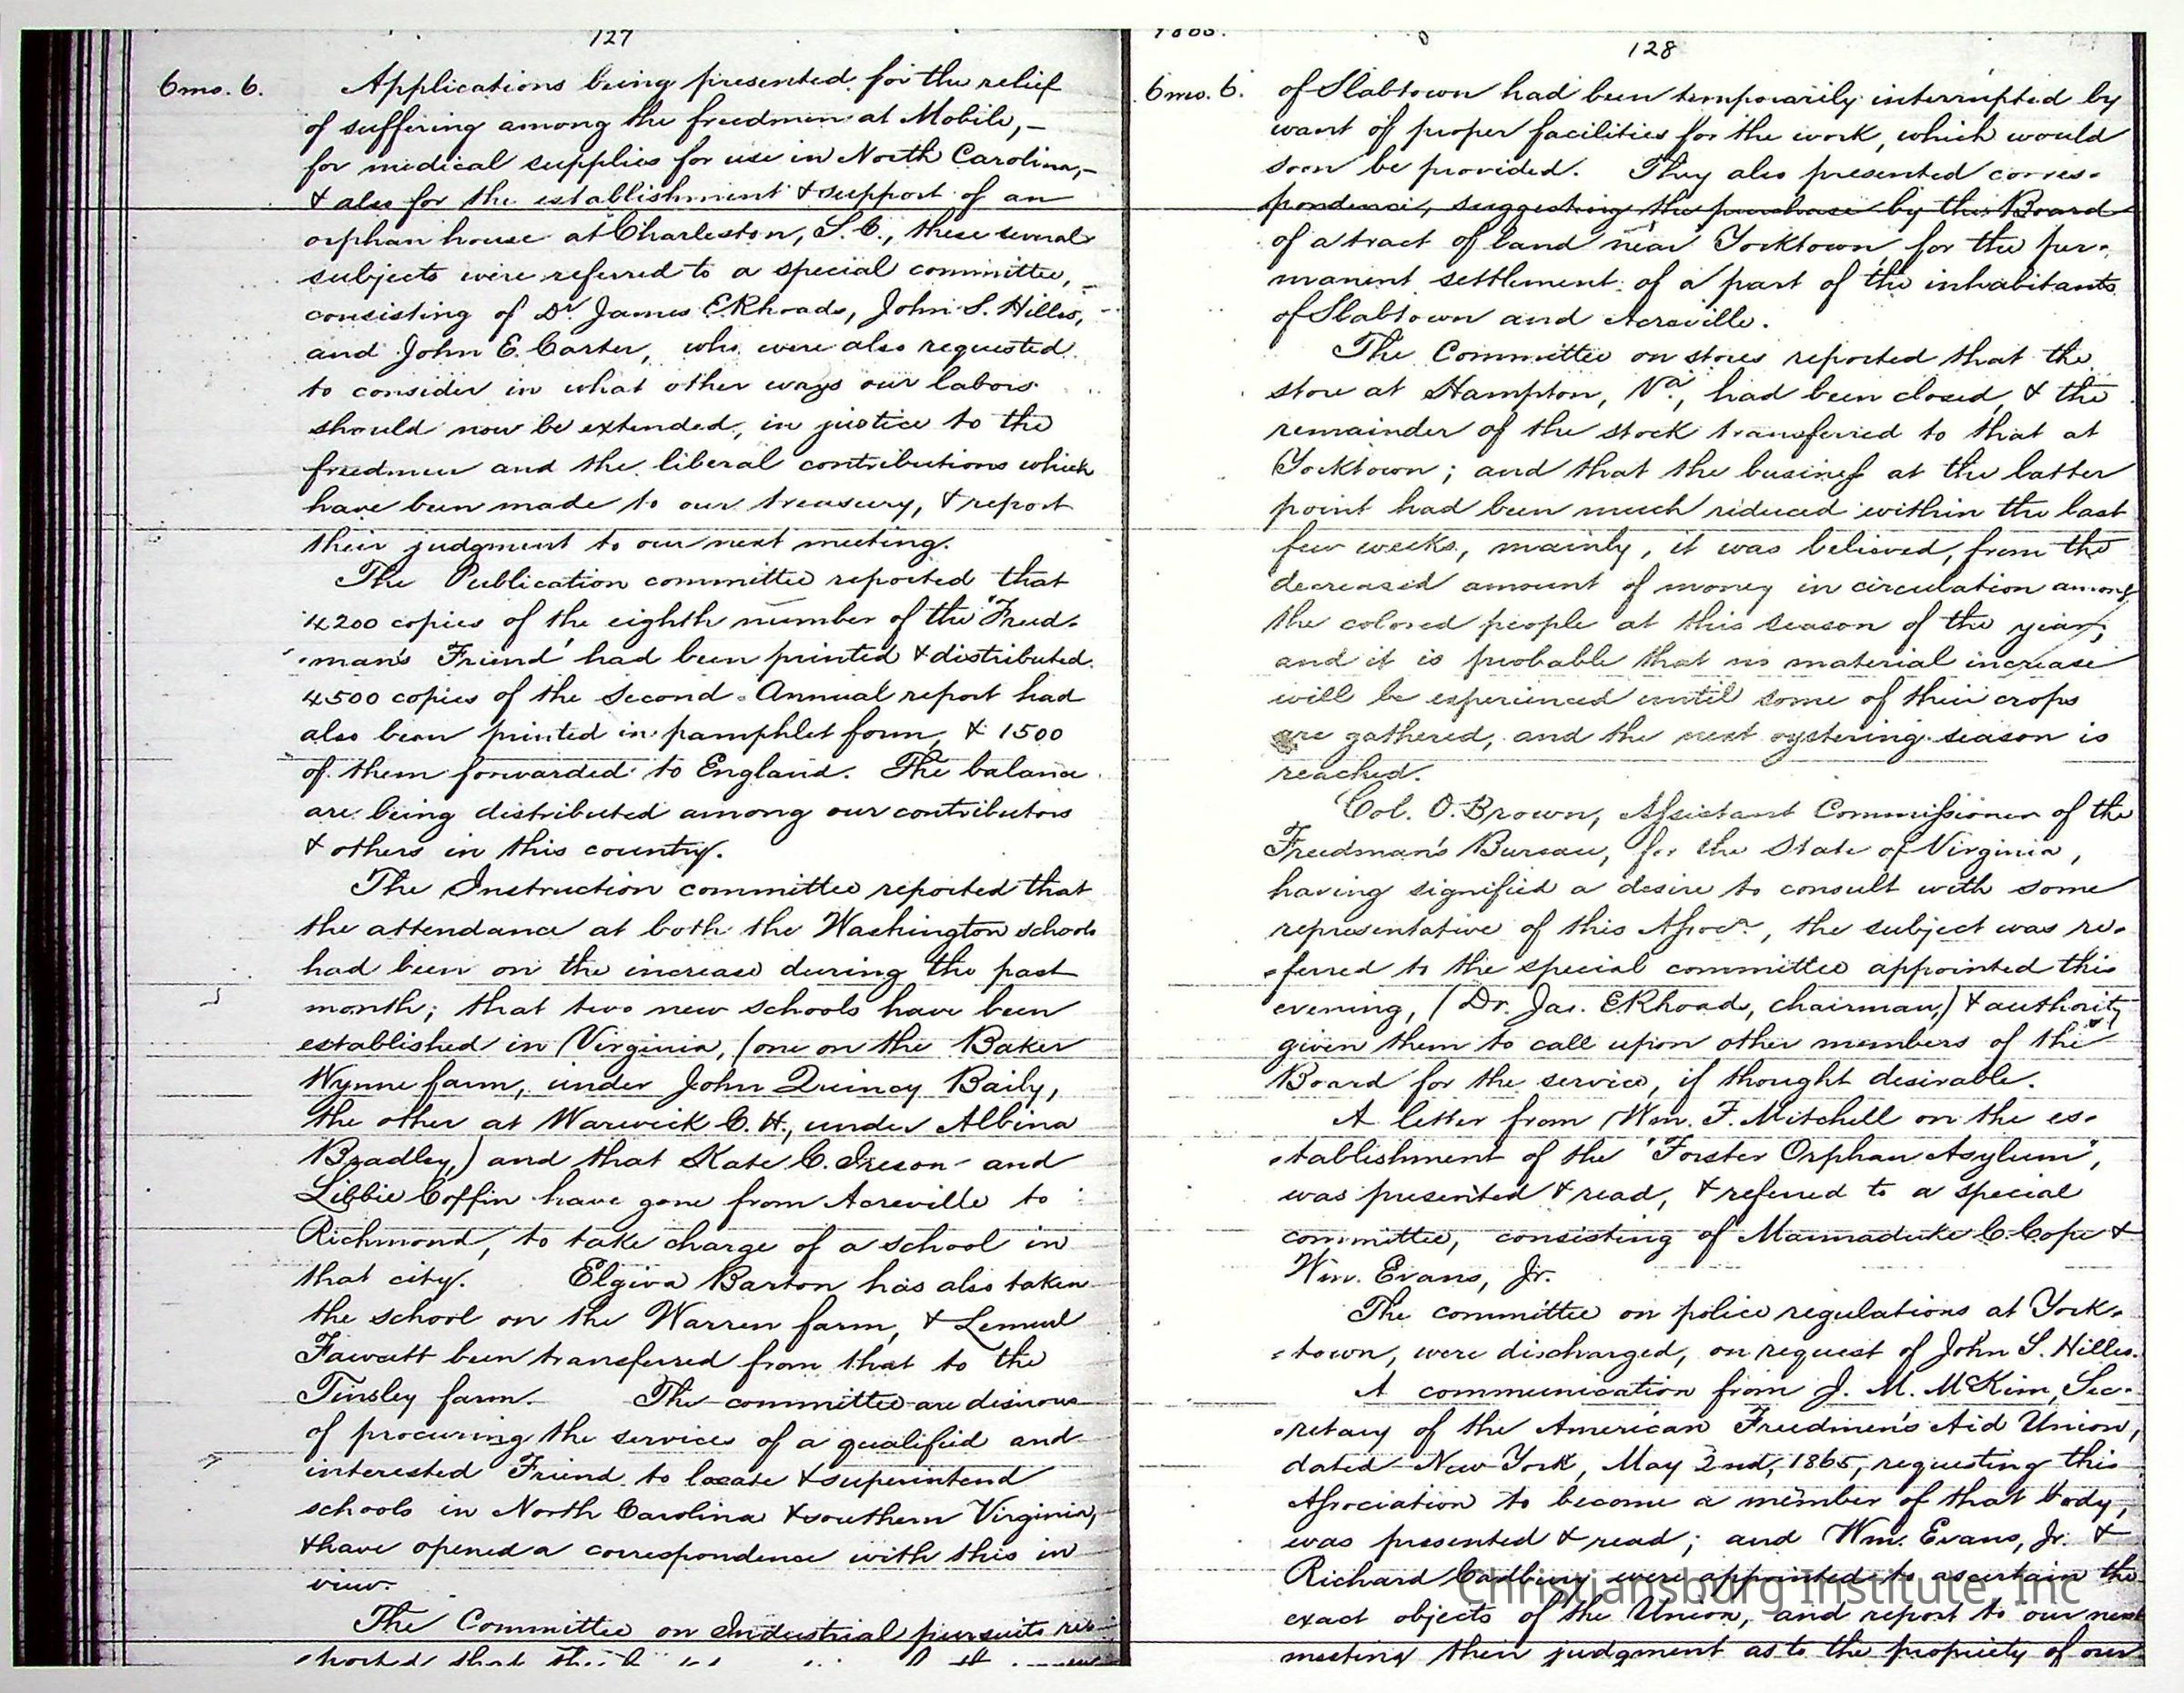 127
6mo. 6. Applications being presented for the relief
of suffering among the freedmen at Mobile,-
for medical supplies for use in North Carolina,-
& also for the establishment & support of an
orphan house at Charleston, S.C., these several
subjects were referred to a special committee,
consisting of Dr James E Rhoads, John S. Hilles,
and John E. Carter, who were also requested
to consider in what other ways our labors
should now be extended, in justice to the
freedmen and the liberal contributions which
have been made to our treasury, & report
their judgment to our next meeting.
The Publication committee reported that
4200 copies of the eighth number of the "Freed-
-man's Friend" had been printed & distributed.
4500 copies of the Second Annual report had
also been printed in pamphlet form, & 1500
of them forwarded to England. The balance
are being distributed among our contributors
& others in this country.
The Instruction committee reported that
the attendance at both the Washington schools
had been on the increase during the past
month; that two new schools have been
established in Virginia, (one on the Baker
Wynne farm, under John Quincy Baily,
the other at Warwick C. H., under Albina
Bradley,) and that Kate C. Ireson and
Libbie Coffin have gone from Acreville to
Richmond, to take charge of a school in
that city. Elgiva Barton has also taken
the school on the Warren farm, & Lemuel
Fawcett been transferred from that to the
Tinsley farm. The committee are desirous
of procuring the services of a qualified and
interested Friend to locate & superintend
schools in North Carolina & southern Virginia,
& have opened a correspondence with this in
view.
The Committee on Industrial pursuits re-
-ported that the
128
6mo. 6. of Slabtown had been temporarily interrupted by
want of proper facilities for the work, which would
soon be provided. They also presented corres-
pondence, suggesting the purchase by this Board
of a tract of land near Yorktown, for the per-
manent settlement of a part of the inhabitants
of Slabtown and Acreville.
The Committee on stores reported that the
store at Hampton, Va, had been closed, & the
remainder of the stock transferred to that at
Yorktown; and that the business at the latter
point had been much reduced within the last
few weeks, mainly, it was believed, from the
decreased amount of money in circulation among
the colored people at this season of the year;
and it is probable that no material increase
will be experienced until some of their crops
are gathered, and the next oystering season is
reached.
Col. O. Brown, Assistant Commissioner of the
Freedman's Bureau, for the State of Virginia,
having signified a desire to consult with some
representative of this Assocn., the subject was re-
-ferred to the special committee appointed this
evening, (Dr. Jas. E Rhoads, chairman,) & authority
given them to call upon other members of the
Board for the service, if thought desirable.
A letter from Wm. F. Mitchell on the es-
-tablishment of the "Forster Orphan Asylum",
was presented & read, & referred to a special
committee, consisting of Marmaduke C. Cope &
Wm. Evans, Jr.
The committee on police regulations at York-
-town, were discharged, on request of John S. Hilles.
A communication from J. M. McKim, Sec-
-retary of the American Freedmen's Aid Union,
dated New York, May 2nd, 1865, requesting this
Association to become a member of that body,
was presented & read; and Wm. Evans, Jr. &
Richard Cadbury were appointed to ascertain the
exact objects of the Union, and report to our next
meeting their judgment as to the propriety of our
Christiansburg Institute, Inc